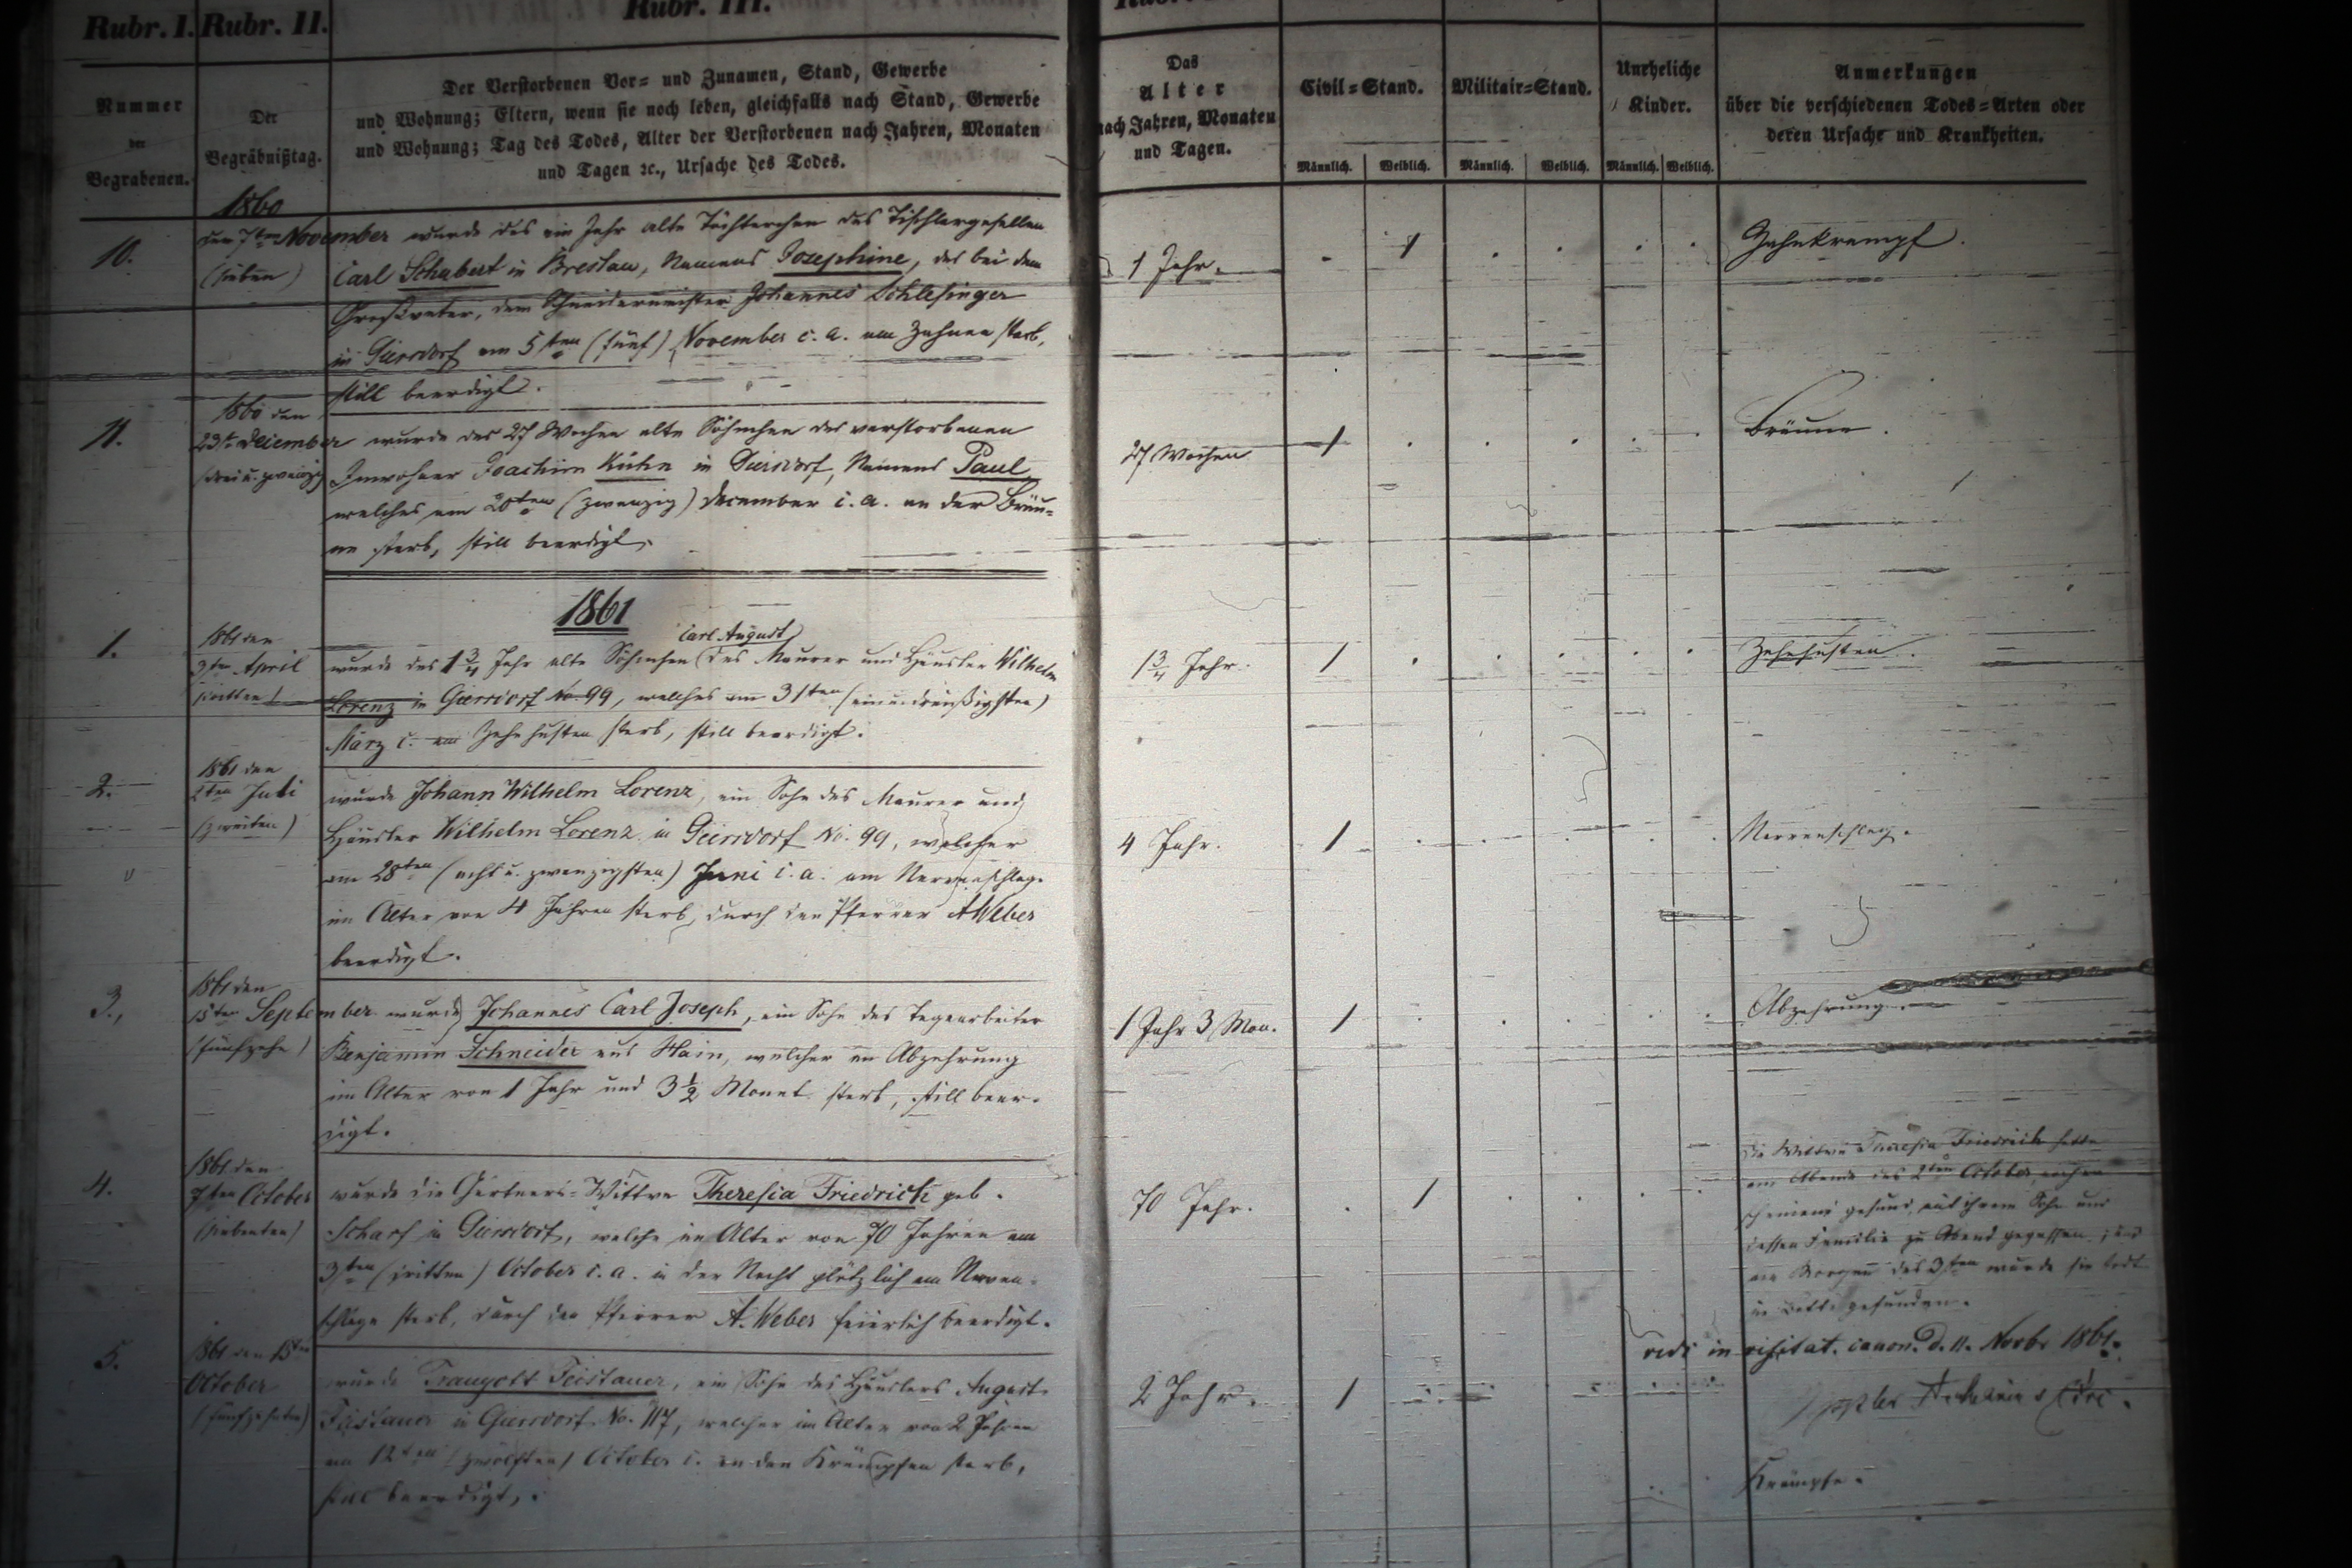 Rubr. I. Rubr. II. Rubr. III.
Nummer der Begrabenen.
Der Begräbnißtag.
Der Verstorbenen Vor= und Zunamen, Stand, Gewerbe
und Wohnung; Eltern, wenn sie noch leben, gleichfalls nach Stand, Gewerbe
und Wohnung; Tag des Todes, Alter der Verstorbenen nach Jahren, Monaten
und Tagen ꝛc., Ursache des Todes.
Das
Alter
nach Jahren, Monaten
und Tagen.
Civil=Stand.
Militair=Stand.
Uneheliche
Kinder.
Männlich. Weiblich. Männlich. Weiblich. Männlich. Weiblich.
Anmerkungen
über die verschiedenen Todes=Arten oder
deren Ursache und Krankheiten.
1860
10.
den 7ten November wurde das ein Jahr alte Töchterchen des Tischlergesellen
(sieben) Carl Schubert in Breslau, Namens Josephine, das bei dem
Großvater, dem Schneidermeister Johannes Schlesinger
in Giersdorf am 5ten (fünf) November c. a. am Zahnen starb,
still beerdigt.
1 Jahr. 1 Zahnkrampf.
11.
1860 den
23te December wurde das 27 Wochen alte Söhnchen des verstorbenen
(drei u. zwanzig) Inwohner Joachim Kühn in Giersdorf, Namens Paul
welches am 20ten (zwanzig) December c. a. an der Bräu=
ne starb, still beerdigt.
27 Wochen 1 Bräune.
1861
1.
1861 den
3ten April
(dritten)
Carl August
wurde das 1 3/4 Jahr alte Söhnchen des Maurer und Häusler Wilhelm
Lorenz in Giersdorf No. 99, welches am 31ten (einunddreißigsten)
März c. am Zehrhusten starb, still beerdigt.
1 3/4 Jahr. 1 Zehrhusten.
2.
1861 den
2ten Juli
(zweiten)
wurde Johann Wilhelm Lorenz, ein Sohn des Maurer und
Häusler Wilhelm Lorenz in Giersdorf No. 99, welcher
am 28ten (acht u. zwanzigsten) Juni c. a. am Nervenschlage
im Alter von 4 Jahren starb, durch den Pfarrer A Weber
beerdigt.
4 Jahr. 1 Nervenschlag.
3.,
1861 den
15ten September wurde Johannes Carl Joseph, ein Sohn des Tagearbeiter
(fünfzehn) Benjamin Schneider aus Hain, welcher an Abzehrung
im Alter von 1 Jahr und 3 1/2 Monat starb, still beer=
digt.
1 Jahr 3 Mon. 1 Abzehrung.
4.
1861 den
7ten October
(siebenten)
wurde die Gärtners=Wittwe Theresia Friedrich geb.
Scharf in Giersdorf, welche im Alter von 70 Jahren am
3ten (dritten) October c. a. in der Nacht plötzlich am Nerven=
schlage starb, durch den Pfarrer A. Weber feierlich beerdigt.
70 Jahr. 1
Die Wittwe Theresia Friedrich hatte
am Abend des 2ten October
scheinend gesund, mit ihrem Sohn und
dessen Familie zu Abend gegessen, und
am Morgen des 3ten wurde sie todt
im Bette gefunden.
vidi in visitat. canon. d. 11. Novbr 1861.
5.
1861 den 15ten
October
(fünfzehnten)
wurde Traugott Feistauer, ein Sohn des Häuslers August
Feistauer in Giersdorf No. 117, welcher im Alter von 2 Jahren
am 12ten (zwölften) October c. an den Krämpfen starb,
still beerdigt.
2 Jahr. 1
Krämpfe.